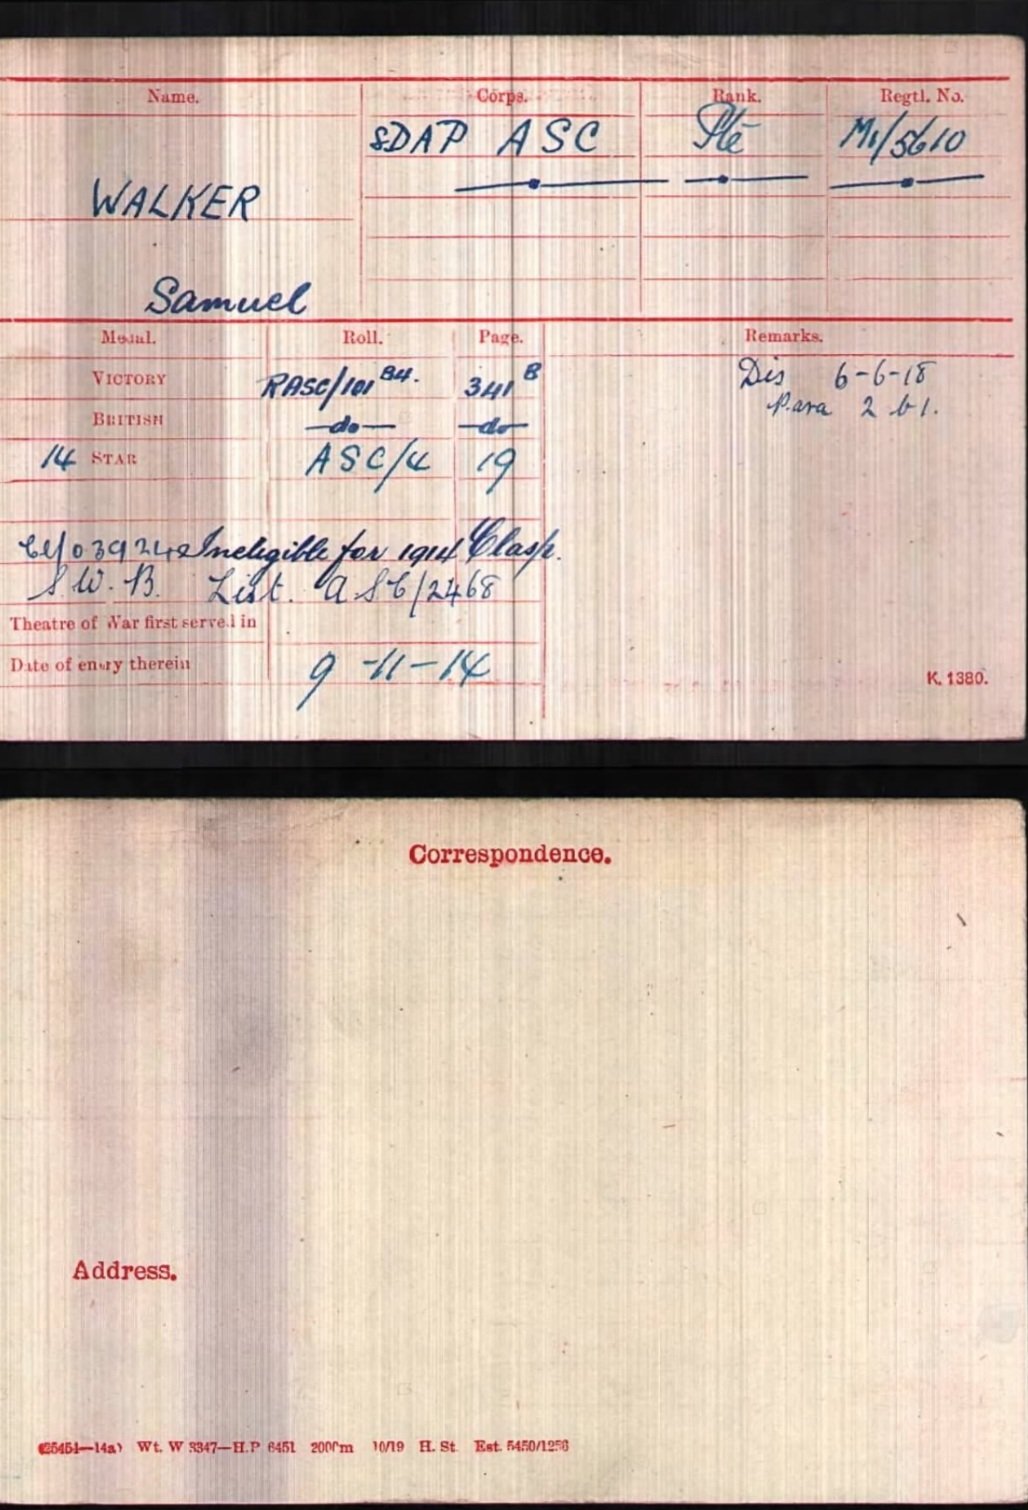 Name. Corps. Rank. Regtl. No.
8DAP ASC Pte M1/5610
WALKER
Samuel
Medal. Roll. Page. Remarks.
VICTORY RASC/101 B4. 341 B Dis 6-6-18
BRITISH —do— —do— Para 2 b1.
14 STAR ASC/4 19
Ineligible for 1914 Clasp.
S.W.B. List. ASC/2468
Theatre of War first served in
Date of entry therein 9-11-14
K. 1380.
Correspondence.
Address.
(25451—14a) Wt. W 3347—H.P 6451 2000m 10/19 H. St. Est. 5450/1256